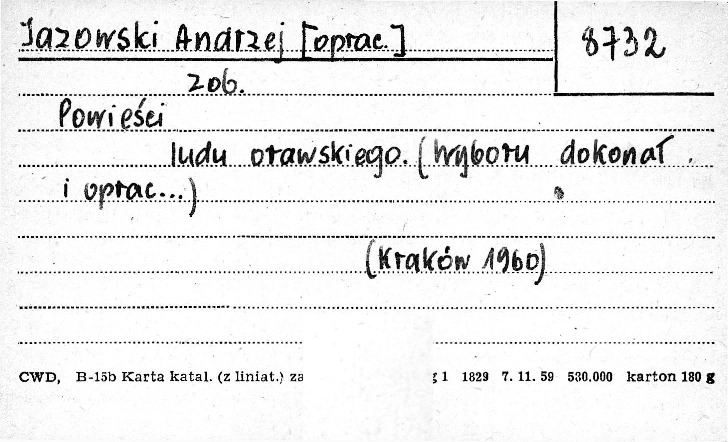 Jazowski Andrzej [oprac.]
8732
zob.
Powieści
ludu orawskiego. (Wyboru dokonał
i oprac...)
(Kraków 1960)
CWD, B-15b Karta katal. (z liniat.) za
g 1 1829 7. 11. 59 530.000 karton 180 g